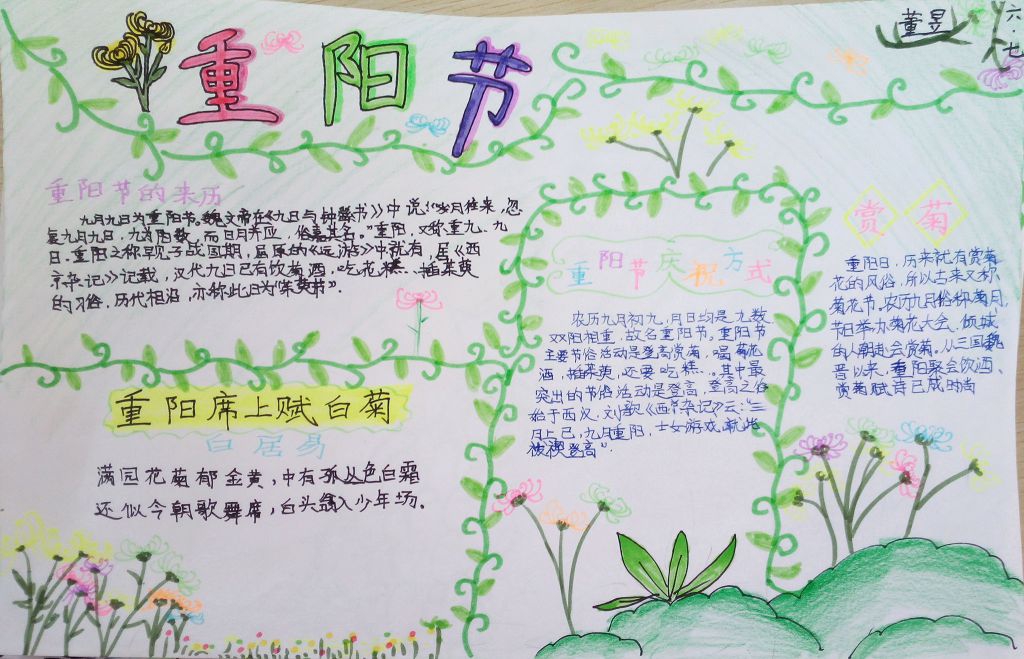 重阳节
董昱
六·七
重阳节的来历
九月九日为重阳节。魏文帝在《九日与钟繇书》中说:“岁月往来,忽
复九月九日,九为阳数,而日月并应,俗嘉其名。”重阳,又称重九、九
日。重阳之称早见于战国期,屈原的《远游》中就有,居《西
京杂记》记载,汉代九日已有饮菊酒,吃花糕…插茱萸
的习俗,历代相沿,亦称此日为“茱萸节”.
重阳席上赋白菊
白居易
满园花菊郁金黄,中有孤丛色白霜
还似今朝歌舞席,白头翁入少年场。
重阳节庆祝方式
农历九月初九,月日均是九数,
双阳相重,故名重阳节,重阳节
主要节俗活动是登高赏菊,喝菊花
酒,插茱萸,还要吃糕…。其中最
突出的节俗活动是登高,登高之俗
始于西汉,刘歆《西京杂记》云:“三
月上巳,九月重阳,士女游戏,就此
祓禊登高”.
赏菊
重阳日,历来就有赏菊
花的风俗,所以古来又称
菊花节。农历九月俗称菊月,
节日举办菊花大会、倾城
的人朝赴会赏菊。从三国魏
晋以来,重阳聚会饮酒、
赏菊赋诗已成时尚